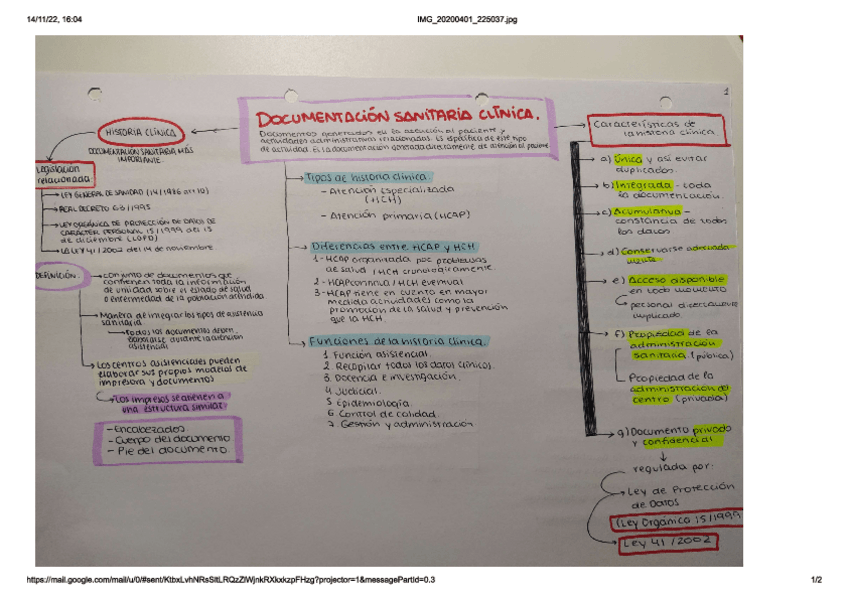 14/11/22, 16:04
IMG_20200401_225037.jpg
1
DOCUMENTACIÓN SANITARIA CLÍNICA.
Documentos generados en la atención al paciente y
actividades administrativas relacionadas. Es específica de este tipo
de actividad. Es la documentación generada directamente de atención al paciente
HISTORIA CLÍNICA
DOCUMENTACIÓN SANITARIA MÁS
IMPORTANTE.
Legislación
relacionada.
LEY GENERAL DE SANIDAD (14/1986 art 10)
REAL DECRETO 63/1995
LEY ORGÁNICA DE PROTECCIÓN DE DATOS DE
CARÁCTER PERSONAL 15/1999 del 13
de diciembre (LOPD)
LA LEY 41/2002 del 14 de noviembre
DEFINICIÓN.
conjunto de documentos que
contienen toda la información
de utilidad sobre el estado de salud
o enfermedad de la población atendida
Manera de integrar los tipos de asistencia
sanitaria.
Todos los documentos deben
elaborarse durante la atención
asistencial
Los centros asistenciales pueden
elaborar sus propios modelos de
impresora y documentos
Los impresos se atienen a
una estructura similar
- Encabezados
- Cuerpo del documento
- Pie del documento.
Tipos de historia clínica.
- Atención especializada
(HCH)
- Atención primaria (HCAP)
Diferencias entre HCAP y HCH
1- HCAP organizada por problemas
de salud / HCH cronológicamente.
2- HCAP continua / HCH eventual
3- HCAP tiene en cuenta en mayor
medida actividades como la
promoción de la salud y prevención
que la HCH.
Funciones de la historia clínica.
1. Función asistencial.
2. Recopilar todos los datos clínicos.
3. Docencia e investigación.
4. Judicial.
5. Epidemiología.
6. Control de calidad.
7. Gestión y administración
Características de
la historia clínica.
a) Única y así evitar
duplicados.
b) Integrada - toda
la documentación.
c) Acumulativa -
constancia de todos
los datos
d) Conservarse adecuada
mente
e) Acceso disponible
en todo momento
personal directamente
implicado
f) Propiedad de la
administración
sanitaria. (pública)
Propiedad de la
administración del
centro (privada)
g) Documento privado
y confidencial
regulada por:
Ley de Protección
de Datos
(Ley Orgánica 15/1999
Ley 41/2002
https://mail.google.com/mail/u/0/#sent/KtbxLvhNRsSltLRQzZlWjnkRXkxkzpFHzg?projector=1&messagePartId=0.3
1/2